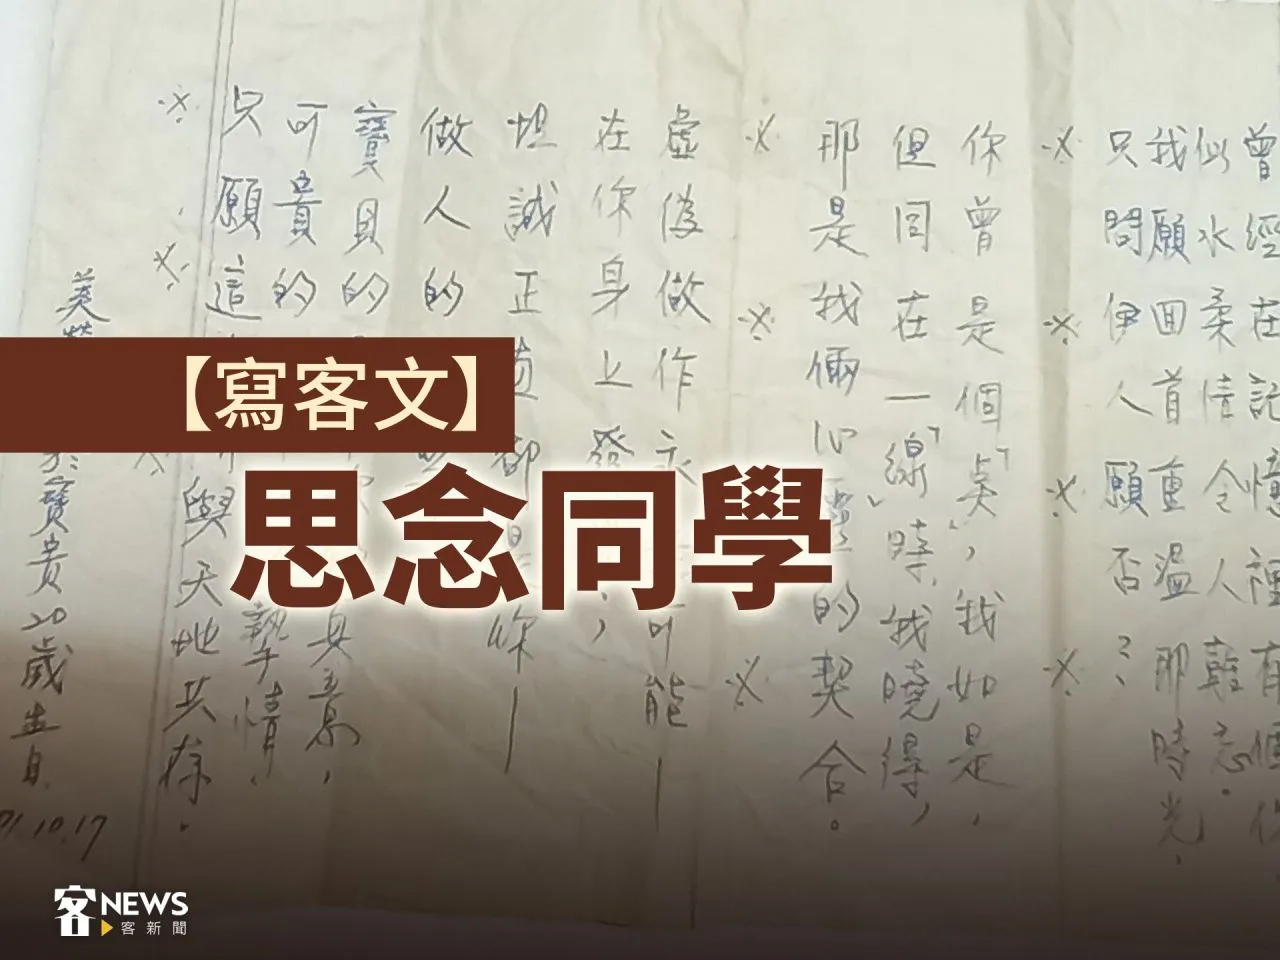 曾經在記憶裡有個你
似水柔情令人難忘。
我願回首重溫那時光，
只問伊人願否??
※ ※ ※ ※
你曾是個「」，我如是，
但同在一「線」時，我曉得，
那是我倆心靈的契合。
※ ※ ※
虛偽做作永可能—
在你身上發，
坦誠正直都是妳—
做人的
寶貝的真意，
可貴的摯情，
只願這與天地共存。
※ ※ ※
美於寶貴20歲生日.
71.10.17
【寫客文】
思念同學
客NEWS
客新聞